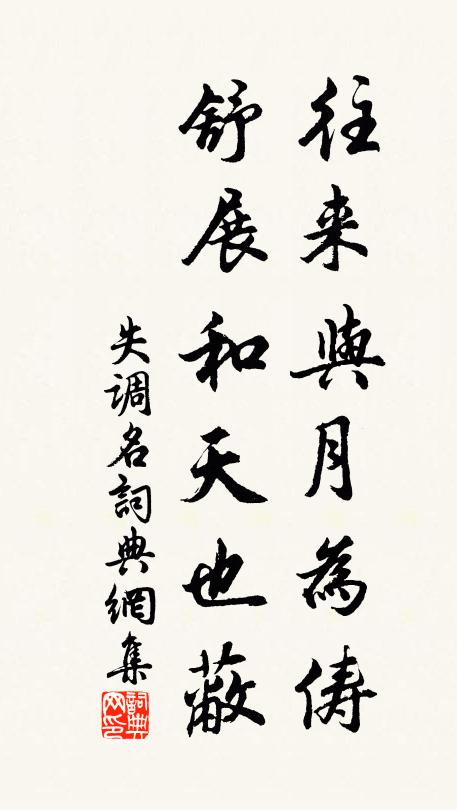 往来與月為儔
舒展和天也蔽
失调名詞典網集
詞典网印